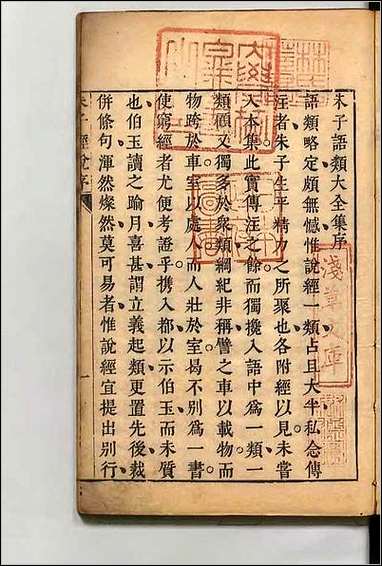 朱子語類大全集序
語類略定頗無憾惟說經一類占且大半私念傳
注者朱子生平精力之所聚也各附經以見未嘗
入本集此實傳注之餘而獨攙入語中為一類一
類領又獨多於衆類綱紀非稱譬之車以載物而
物跨於車室以處人而人壯於室曷不別為一書
使窮經者尤便考證乎携入都以示伯玉而未質
也伯玉讀之踰月喜甚謂立義起類更置先後裁
併條句渾然燦然莫可易者惟說經宜提出別行
淺草文庫